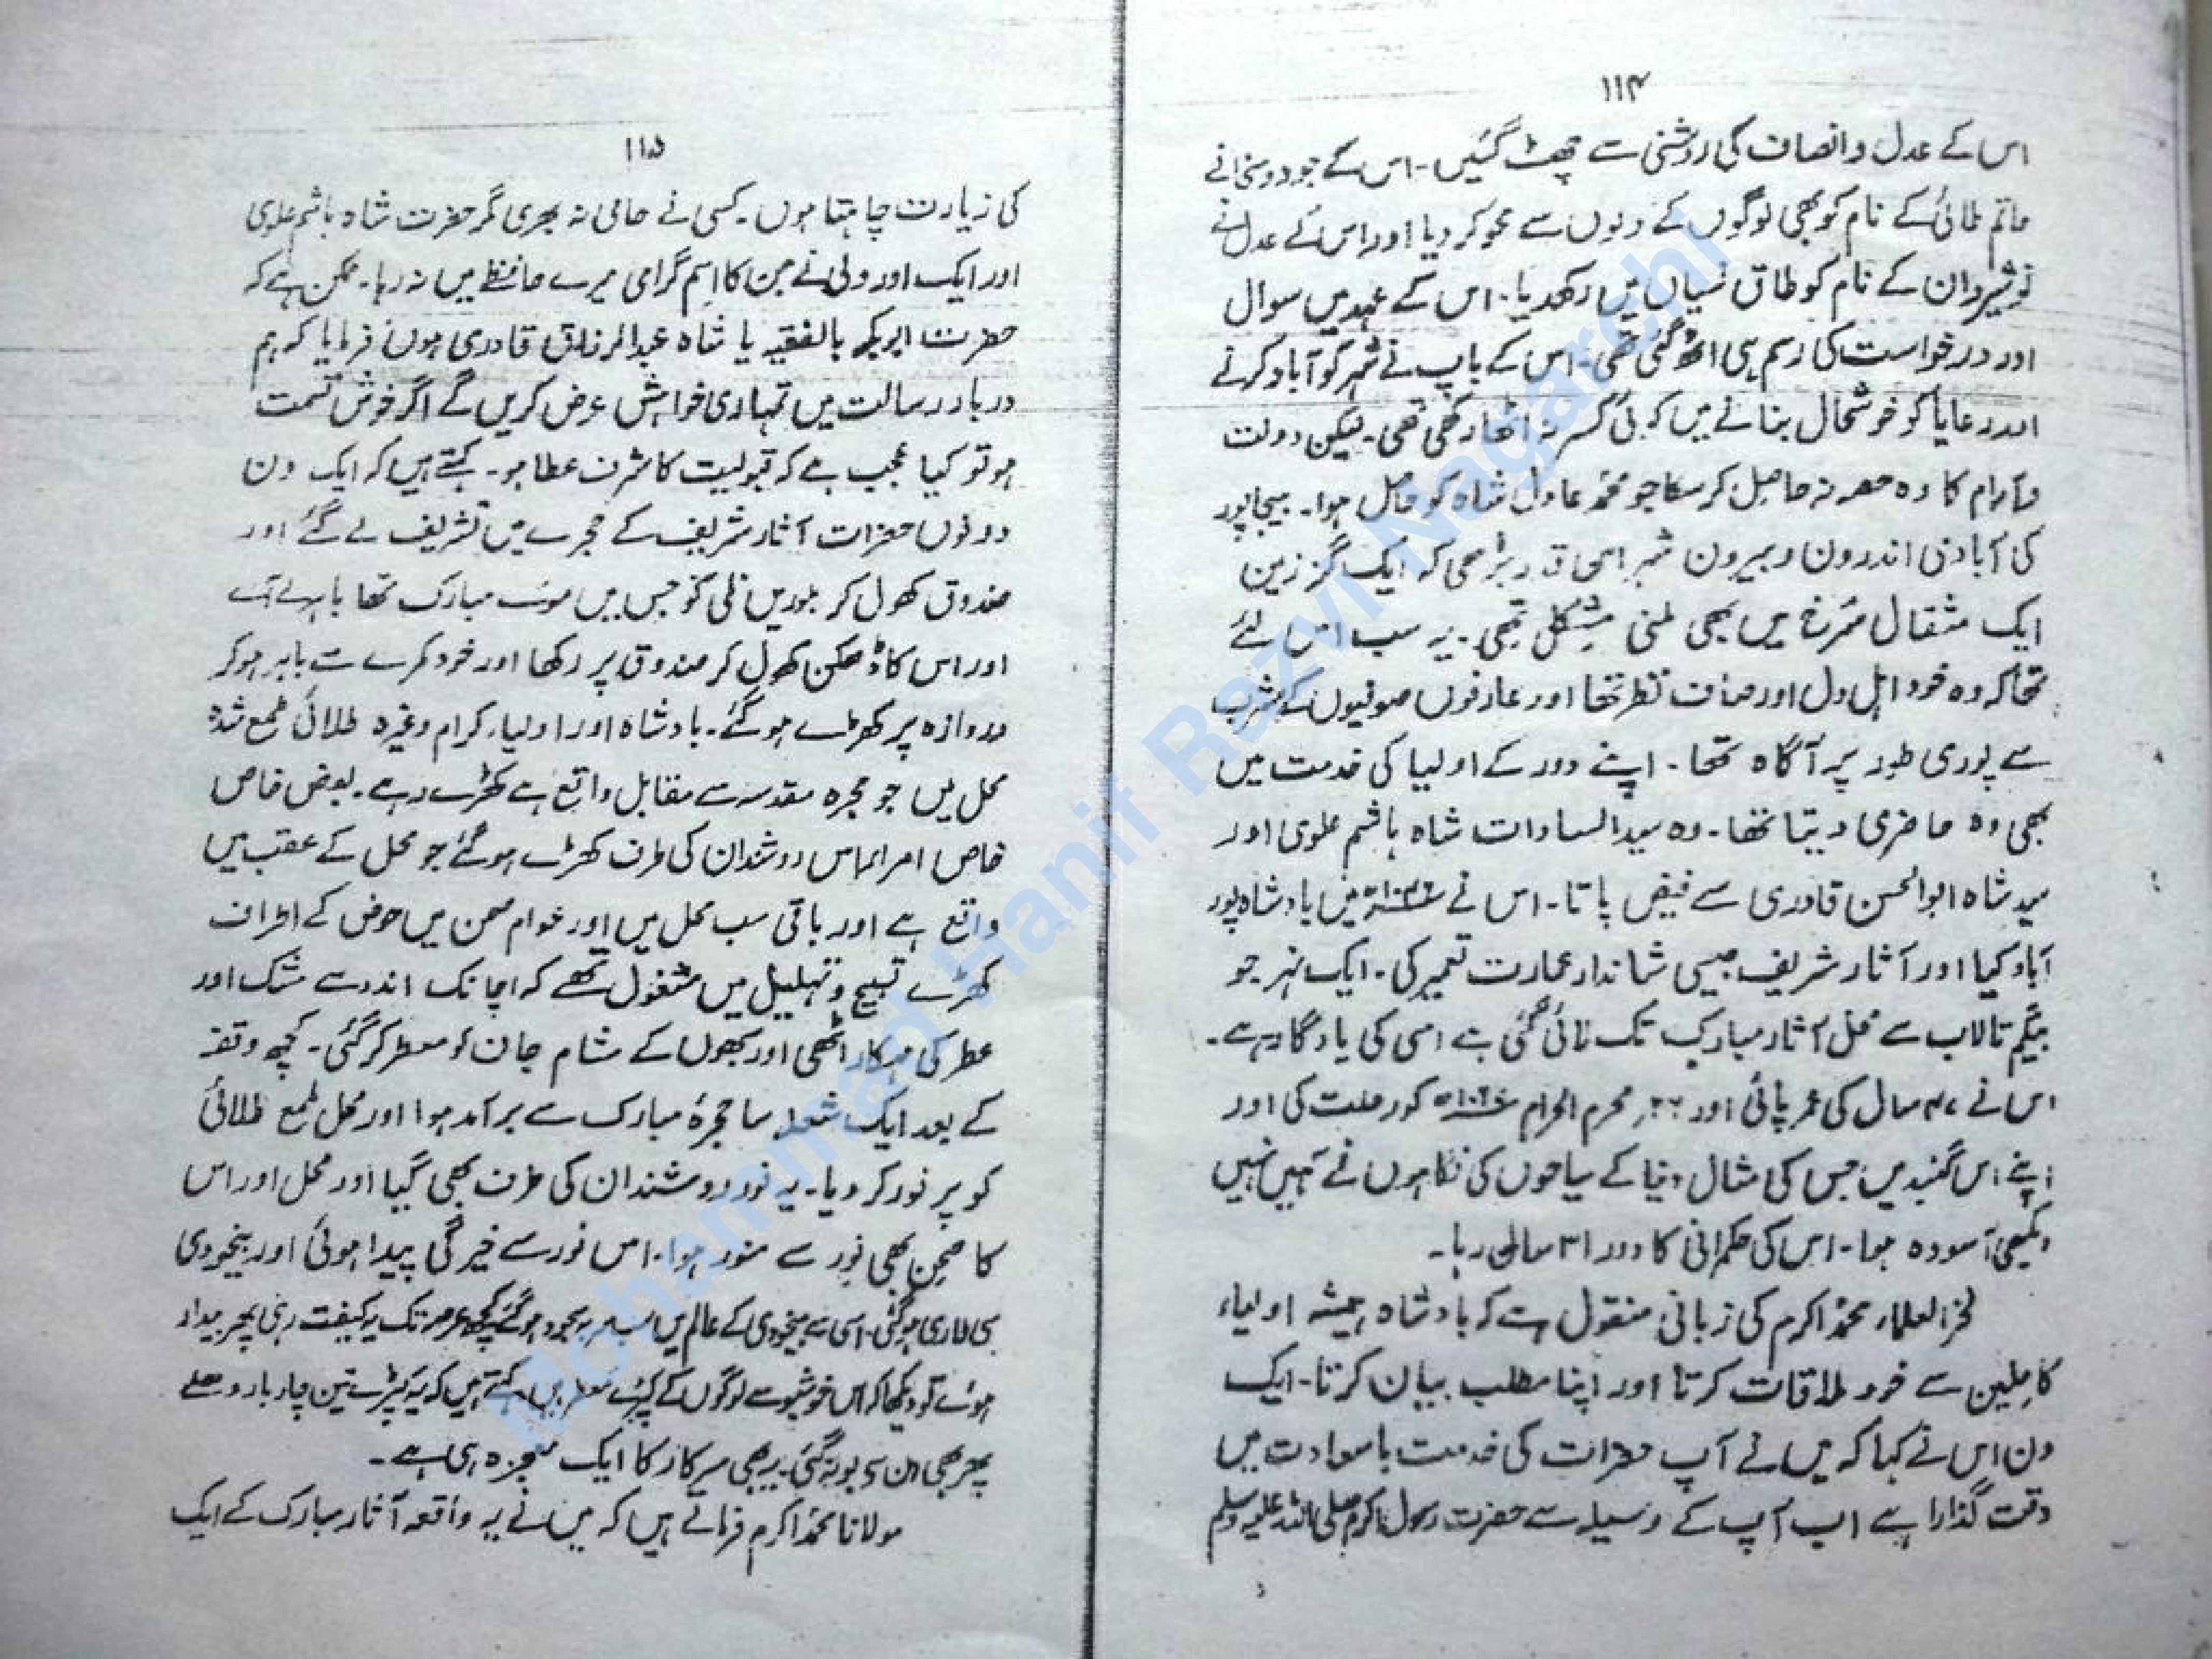 ۱۱۴
اس کے عدل و انصاف کی روشنی سے چھٹ گئیں۔ اس کے جود و سخا نے
حاتم طائی کے نام کو بھی لوگوں کے دلوں سے محو کر دیا اور اس کے عدل نے
نوشیروان کے نام کو طاق نسیاں میں رکھدیا۔ اس کے عہد میں سوال
اور درخواست کی رسم ہی اٹھ گئی تھی۔ اس کے باپ نے شہر کو آباد کرنے
اور رعایا کو خوشحال بنانے میں کوئی کسر نہ اٹھا رکھی تھی۔ لیکن دولت
و آرام کا وہ حصہ نہ حاصل کر سکا جو محمد عادل شاہ کو حاصل ہوا۔ بیجاپور
کی آبادی اندرون و بیرون شہر اسی قدر بڑھی کہ ایک گز زمین
ایک مثقال سُرخ میں بھی ملنی مشکل تھی۔ یہ سب اس لئے
تھا کہ وہ خود اہل دل اور صاف نظر تھا اور عارفوں صوفیوں کے مشرب
سے پوری طور پر آگاہ تھا۔ اپنے دور کے اولیا کی خدمت میں
بھی وہ حاضری دیتا تھا۔ وہ سید السادات شاہ ہاشم علوی اور
سید شاہ ابوالحسن قادری سے فیض پاتا۔ اس نے میں بادشاہ پور
آباد کیا اور آثار شریف جیسی شاندار عمارت تعمیر کی۔ ایک نہر جو
بیگم تالاب سے محل آثار مبارک تک لائی گئی ہے اسی کی یادگار ہے۔
اس نے ۴۷ سال کی عمر پائی اور ۲۶؍ محرم الحرام کو رحلت کی اور
اپنے اس گنبد میں جس کی مثال دنیا کے سیاحوں کی نگاہوں نے کہیں نہیں
دیکھی آسودہ ہوا۔ اس کی حکمرانی کا دور ۳۱ سال رہا۔
فخر العلماء محمد اکرم کی زبانی منقول ہے کہ بادشاہ ہمیشہ اولیاء
کاملین سے خود ملاقات کرتا اور اپنا مطلب بیان کرتا۔ ایک
دن اس نے کہا کہ میں نے آپ حضرات کی خدمت باسعادت میں
وقت گذارا ہے اب آپ کے وسیلہ سے حضرت رسول اکرم صلی اللہ علیہ وسلم
۱۱۵
کی زیارت چاہتا ہوں۔ کسی نے حامی نہ بھری مگر حضرت شاہ ہاشم علوی
اور ایک اور ولی نے جن کا اسم گرامی میرے حافظے میں نہ رہا۔ ممکن ہے کہ
حضرت ابوبکر بالفقیہ یا شاہ عبدالرزاق قادری ہوں فرمایا کہ ہم
دربار رسالت میں تمہاری خواہش عرض کریں گے اگر خوش قسمت
ہو تو کیا عجب ہے کہ قبولیت کا شرف عطا ہو۔ کہتے ہیں کہ ایک دن
دونوں حضرات آثار شریف کے حجرے میں تشریف لے گئے اور
صندوق کھول کر بلوریں نلی کو جس میں موئے مبارک تھا باہر لے آئے
اور اس کا ڈھکن کھول کر صندوق پر رکھا اور خود کمرے سے باہر ہو کر
دروازہ پر کھڑے ہو گئے۔ بادشاہ اور اولیاء کرام وغیرہ طلائی ملمع شدہ
محل میں جو حجرہ مقدسہ سے مقابل واقع ہے کھڑے رہے۔ بعض خاص
خاص امرا اس روشندان کی طرف کھڑے ہو گئے جو محل کے عقب میں
واقع ہے اور باقی سب محل میں اور عوام صحن میں حوض کے اطراف
کھڑے تسبیح و تہلیل میں مشغول تھے کہ اچانک اندر سے مشک اور
عطر کی مہکار اٹھی اور سبھوں کے مشام جان کو معطر کر گئی۔ کچھ وقفہ
کے بعد ایک شعلہ سا حجرۂ مبارک سے برآمد ہوا اور محل ملمع طلائی
کو پر نور کر دیا۔ یہ نور روشندان کی طرف بھی گیا اور محل اور اس
کا صحن بھی نور سے منور ہوا۔ اس نور سے خیرگی پیدا ہوئی اور بیخودی
سی طاری ہو گئی۔ اسی بیخودی کے عالم میں سب سر بسجود ہو گئے کچھ عرصہ تک یہ کیفیت رہی پھر بیدار
ہوئے تو دیکھا کہ اس خوشبو سے لوگوں کے کپڑے معطر ہیں۔ کہتے ہیں کہ یہ کپڑے تین چار بار دھلے
پھر بھی ان کی بو نہ گئی۔ یہ بھی سرکار کا ایک معجزہ ہی ہے۔
مولانا محمد اکرم فرماتے ہیں کہ میں نے یہ واقعہ آثار مبارک کے ایک
Mohammad Hanif Razvi Nagarchi